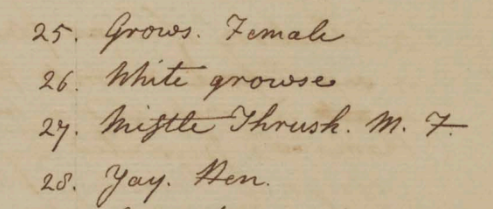 25. Grows. Female
26. White growse
27. Mistle Thrush. M. F.
28. Jay. Hen.